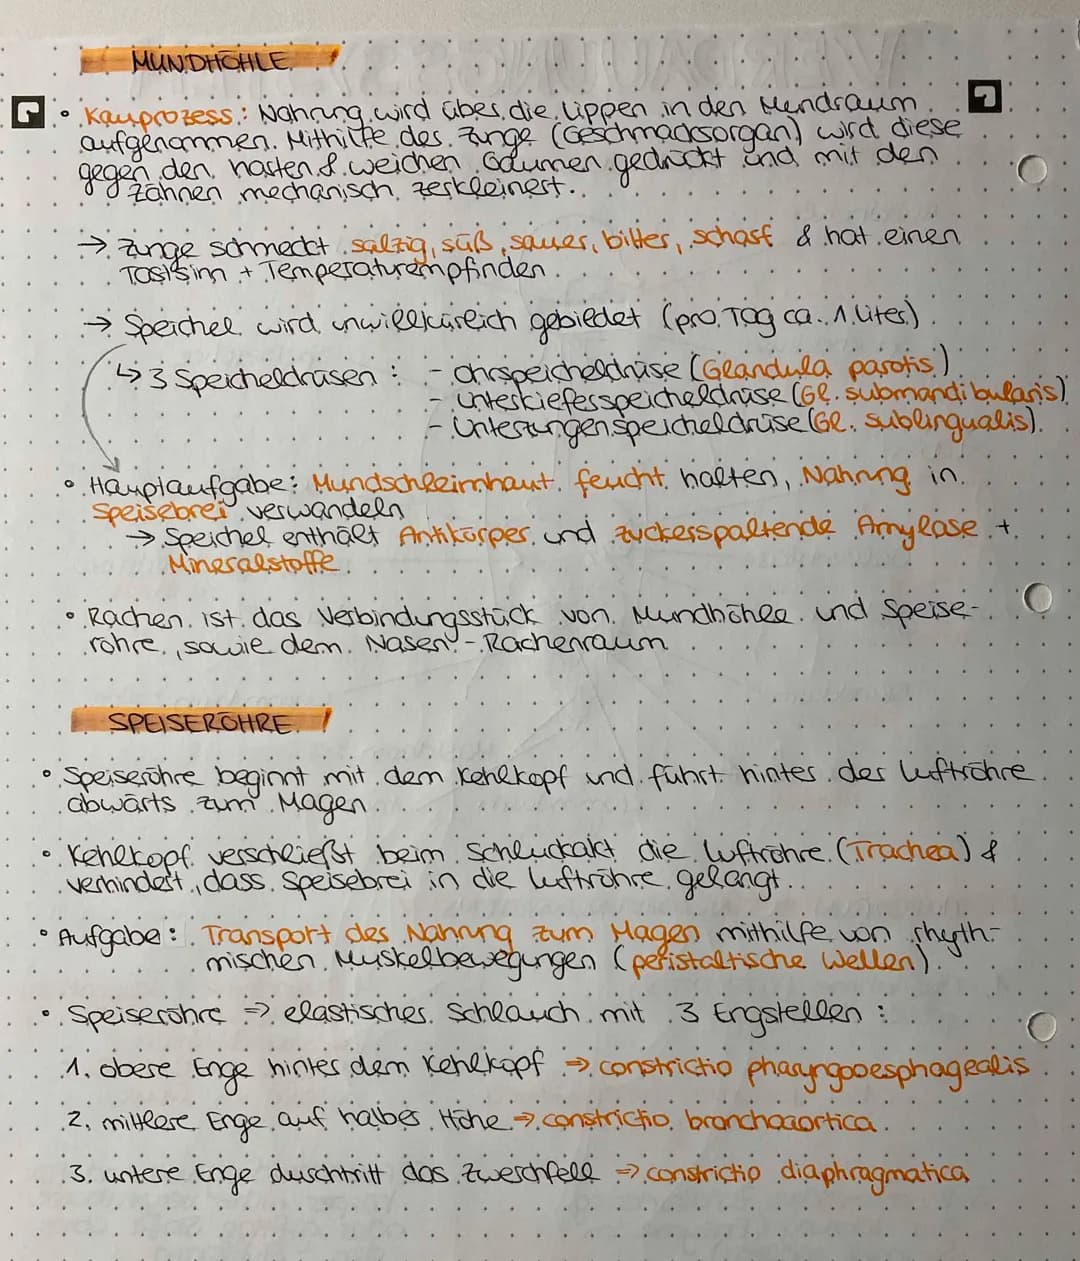 MUNDHÖHLE
• Kauprozess: Nahrung wird über die Lippen in den Mundraum
aufgenommen. Mithilfe der Zunge (Geschmacksorgan) wird diese
gegen den harten & weichen Gaumen gedrückt und mit den
Zähnen mechanisch zerkleinert.
→ Zunge schmeckt salzig, süß, sauer, bitter, scharf & hat einen
Tastsinn + Temperaturempfinden
→ Speichel wird unwillkürlich gebildet (pro Tag ca. 1 Liter)
↳ 3 Speicheldrüsen: - Ohrspeicheldrüse (Glandula parotis)
- Unterkieferspeicheldrüse (Gl. submandibularis)
- Unterzungenspeicheldrüse (Gl. sublingualis)
• Hauptaufgabe: Mundschleimhaut feucht halten, Nahrung in
Speisebrei verwandeln
→ Speichel enthält Antikörper und zuckerspaltende Amylase +
Mineralstoffe
• Rachen ist das Verbindungsstück von Mundhöhle und Speise-
röhre, sowie dem Nasen-Rachenraum
SPEISERÖHRE
• Speiseröhre beginnt mit dem Kehlkopf und führt hinter der Luftröhre
abwärts zum Magen
• Kehlkopf verschließt beim Schluckakt die Luftröhre (Trachea) &
verhindert, dass Speisebrei in die Luftröhre gelangt.
• Aufgabe: Transport der Nahrung zum Magen mithilfe von rhyth-
mischen Muskelbewegungen (peristaltische Wellen)
• Speiseröhre ⇒ elastischer Schlauch mit 3 Engstellen:
1. obere Enge hinter dem Kehlkopf ⇒ constrictio pharyngooesphagealis
2. mittlere Enge auf halber Höhe ⇒ constrictio bronchoaortica
3. untere Enge durchtritt das Zwerchfell ⇒ constrictio diaphragmatica